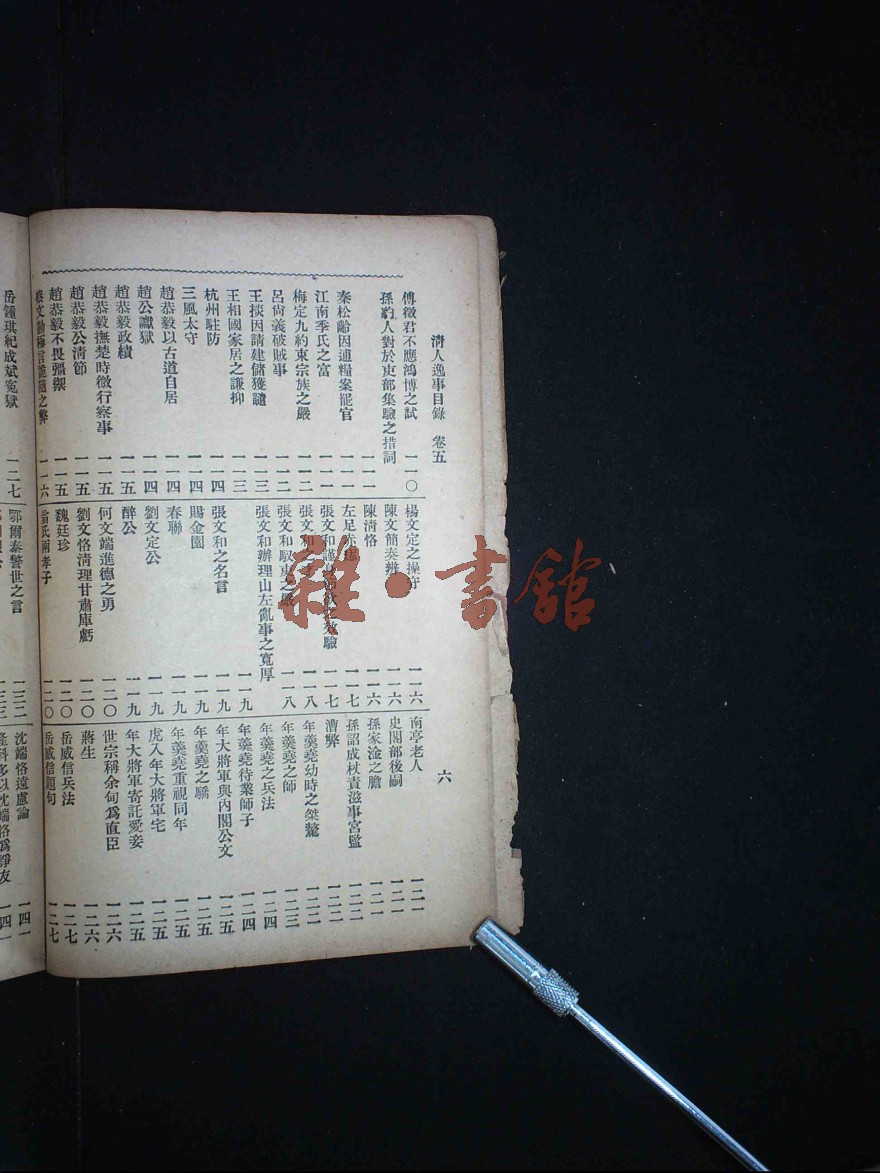 清人逸事目錄　卷五
六
傅徵君不應鴻博之試　一一〇
孫豹人對於吏部集驗之措詞　一一一
秦松齡因逋糧案罷官　一一一
江南季氏之富　一一一
梅定九約束宗族之嚴　一一二
呂尙義破賊事　一一二
王掞因請建儲獲譴　一一三
王相國家居之謙抑　一一三
杭州駐防　一一四
三風太守　一一四
趙恭毅以古道自居　一一四
趙公讞獄　一一四
趙恭毅政績　一一五
趙恭毅撫楚時微行察事　一一五
趙恭毅公淸節　一一五
趙恭毅不畏彊禦　一一五
文勤　言詭隨之弊　一一六
楊文定之操守　一一六
陳文簡奏辨　一一六
陳清恪　一一六
左足赤　一一七
張文和謹　驗　一一七
張文和　一一八
張文和馭吏之嚴　一一八
張文和辦理山左亂事之寬厚
張文和之名言　一一九
賜金園　一一九
春聯　一一九
劉文定公　一一九
醉公　一一九
何文端進德之勇　一二〇
劉文恪淸理甘肅庫虧　一二〇
魏廷珍　一二〇
氏兩孝子　一二〇
南亭老人　一二一
史閣部後嗣　一二一
孫家淦之膽　一二一
孫詔成杖責滋事宮監　一二二
漕弊　一二二
年羹堯幼時之桀驁　一二二
年羹堯之師　一二三
年羹堯之兵法　一二四
年羹堯待業師子　一二四
年大將軍與內閣公文　一二五
年羹堯之驕　一二五
年羹堯重視同年　一二五
虎入年大將軍宅　一二五
年大將軍寄託愛妾　一二五
世宗稱余甸爲直臣　一二六
蔣生　一二六
岳威信兵法　一二七
岳威信題句　一二七
岳鍾琪紀成斌冤獄　一二七
鄂爾泰警世之言　一三二
一三三
沈端恪遠慮論　一四一
隆科多以沈端恪爲諍友　一四一
雜·書館